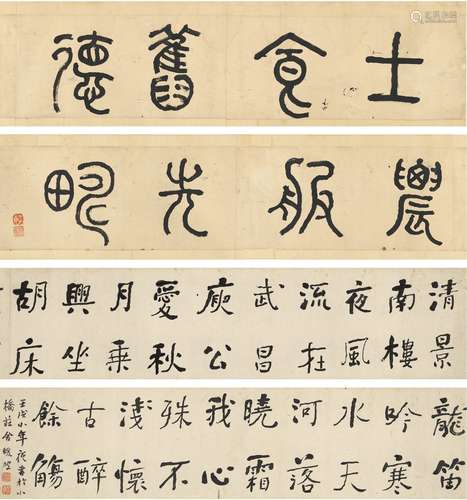 士食舊德
農服先疇
清景
南樓
夜風
流在
武昌
庾公
愛秋
月乘
興坐
胡床
龍笛
吟寒
水天
河落
曉霜
我心
殊不
淺懷
古醉
餘觴
壬戌小年夜書於小
橋